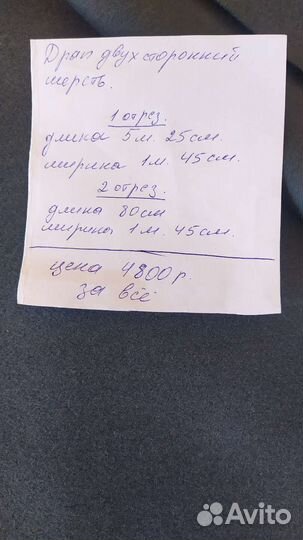 Драп двухсторонний
шерсть.
1 отрез.
длина 5 м. 25 см.
ширина 1 м. 45 см.
2 отрез.
длина 80 см
ширина 1 м. 45 см.
цена 4800 р.
за всё
Avito